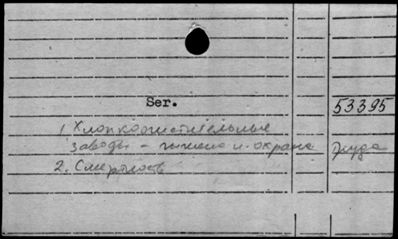 Ser.
53395
1 Хлопкоочистительные
заводы - гигиена и охрана труда
2. С